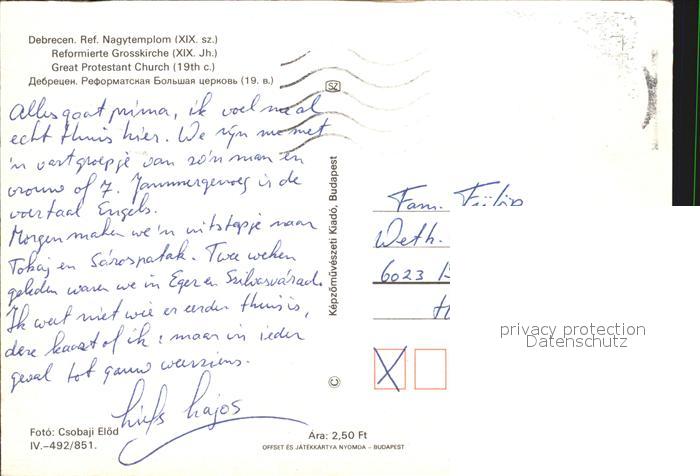 Debrecen. Ref. Nagytemplom (XIX. sz.)
Reformierte Grosskirche (XIX. Jh.)
Great Protestant Church (19th c.)
Дебрецен. Реформатская Большая церковь (19. в.)
SZ
Alles gaat prima, ik voel me al
echt thuis hier. We zijn nu met
'n vast groepje van zo'n man en
vrouw of 7. Jammergenoeg is de
voertaal Engels.
Morgen maken we 'n uitstapje naar
Tokaj en Sárospatak. Twee weken
geleden waren we in Eger en Szilvásvárad.
Ik weet niet wie er eerder thuis is,
deze kaart of ik: maar in ieder
geval tot gauw weerziens.
liefs Lajos
Fotó: Csobaji Előd
IV.–492/851.
Ára: 2,50 Ft
OFFSET ÉS JÁTÉKKÁRTYA NYOMDA – BUDAPEST
© Képzőművészeti Kiadó, Budapest
Fam. Fülöp
Weth.
6023
privacy protection
Datenschutz